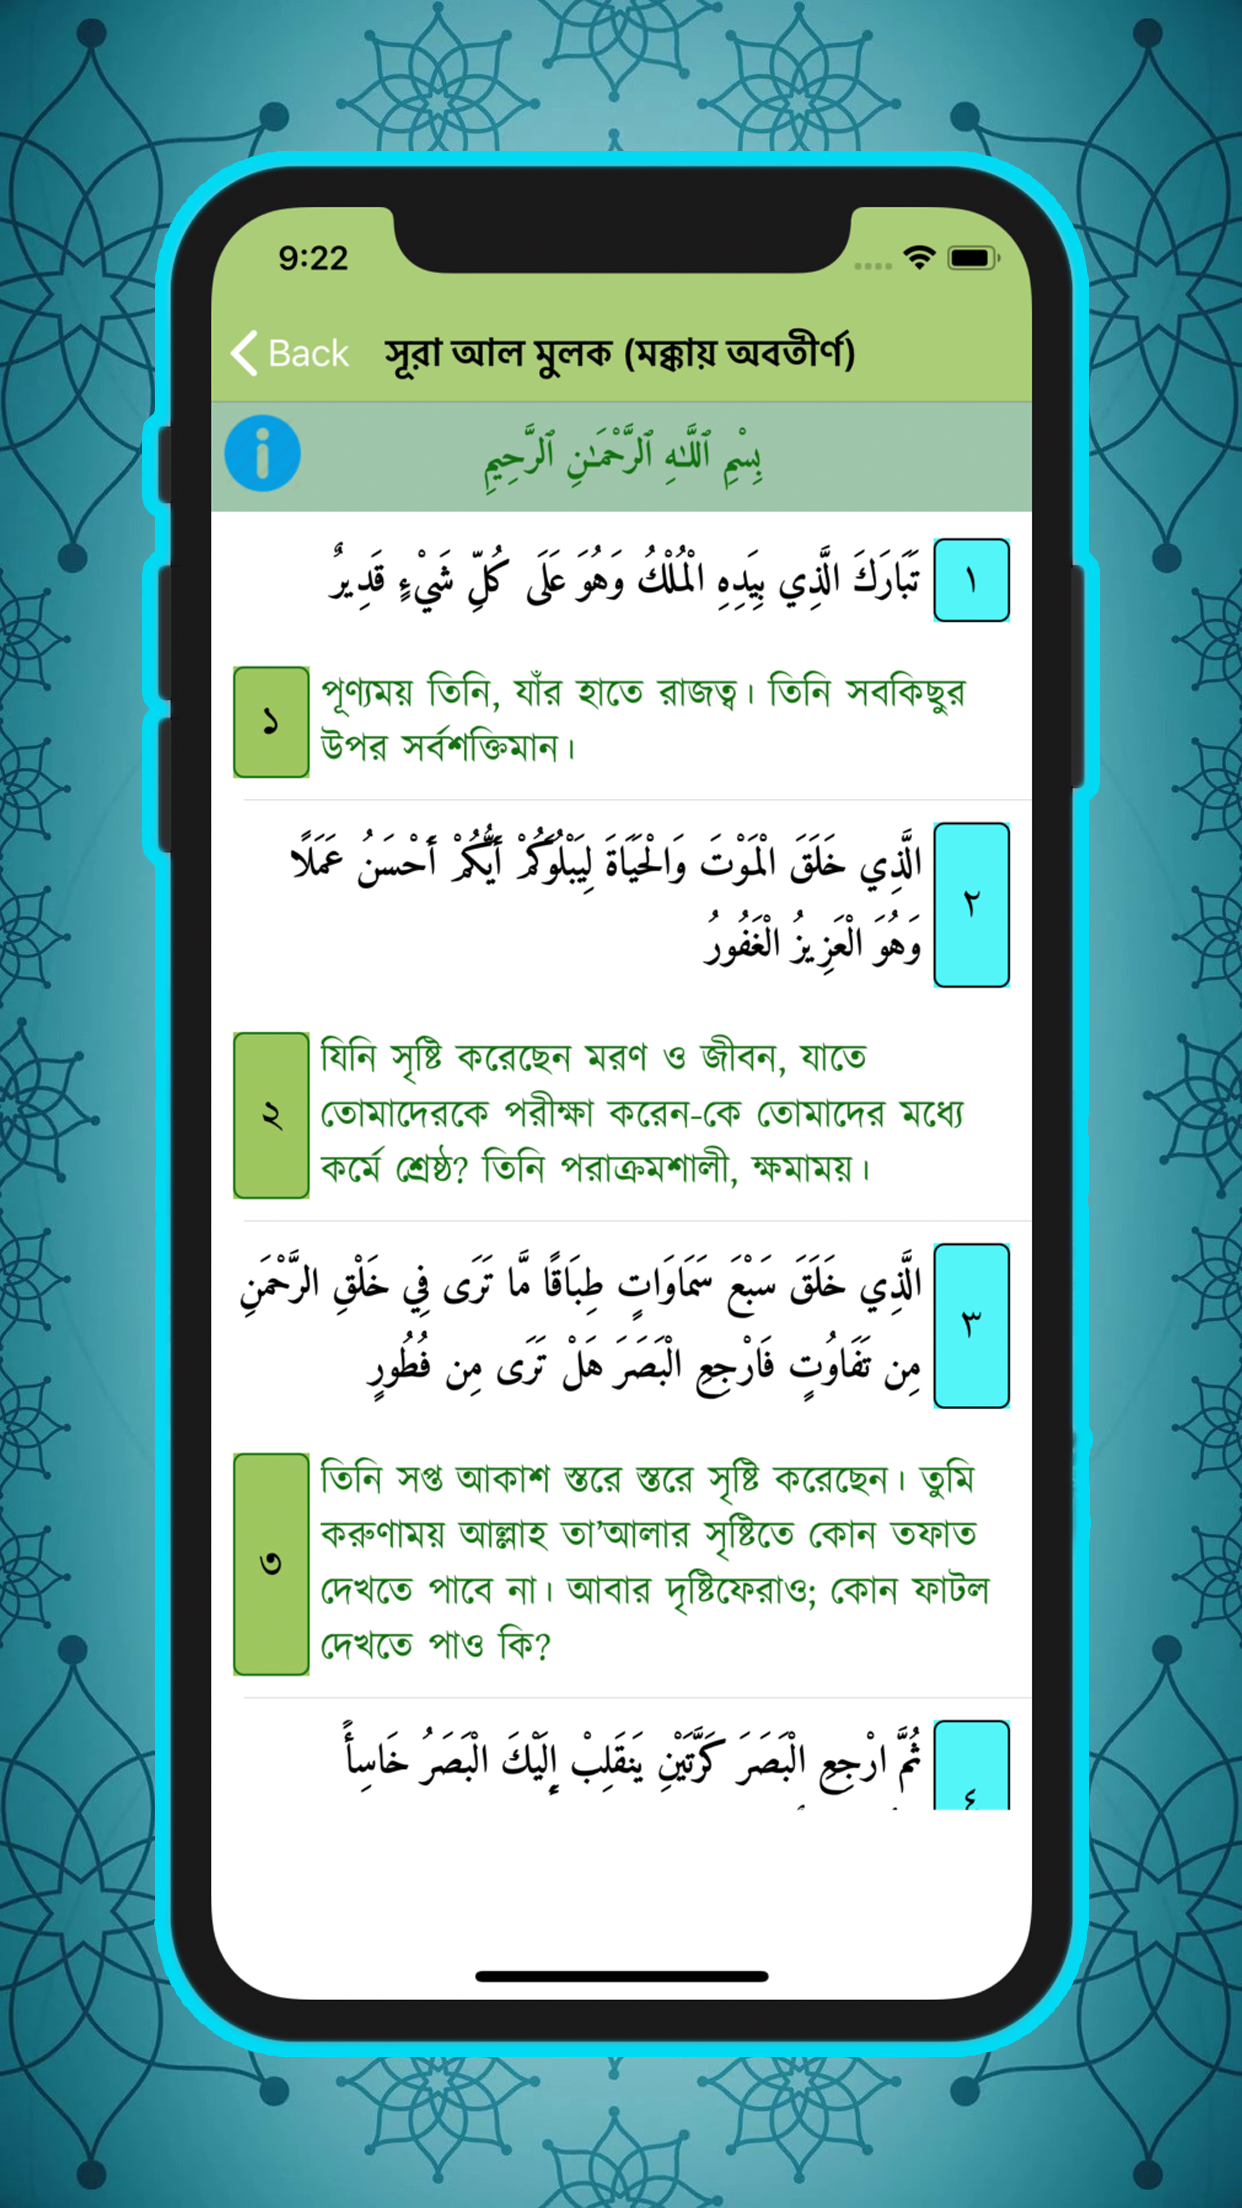 9:22
Back
সূরা আল মুলক (মক্কায় অবতীর্ণ)
بِسْمِ ٱللَّٰهِ ٱلرَّحْمَٰنِ ٱلرَّحِيمِ
١
تَبَارَكَ الَّذِي بِيَدِهِ الْمُلْكُ وَهُوَ عَلَى كُلِّ شَيْءٍ قَدِيرٌ
১
পূণ্যময় তিনি, যাঁর হাতে রাজত্ব। তিনি সবকিছুর
উপর সর্বশক্তিমান।
٢
الَّذِي خَلَقَ الْمَوْتَ وَالْحَيَاةَ لِيَبْلُوَكُمْ أَيُّكُمْ أَحْسَنُ عَمَلًا
وَهُوَ الْعَزِيزُ الْغَفُورُ
২
যিনি সৃষ্টি করেছেন মরণ ও জীবন, যাতে
তোমাদেরকে পরীক্ষা করেন-কে তোমাদের মধ্যে
কর্মে শ্রেষ্ঠ? তিনি পরাক্রমশালী, ক্ষমাময়।
٣
الَّذِي خَلَقَ سَبْعَ سَمَاوَاتٍ طِبَاقًا مَّا تَرَى فِي خَلْقِ الرَّحْمَنِ
مِن تَفَاوُتٍ فَارْجِعِ الْبَصَرَ هَلْ تَرَى مِن فُطُورٍ
৩
তিনি সপ্ত আকাশ স্তরে স্তরে সৃষ্টি করেছেন। তুমি
করুণাময় আল্লাহ তা’আলার সৃষ্টিতে কোন তফাত
দেখতে পাবে না। আবার দৃষ্টিফেরাও; কোন ফাটল
দেখতে পাও কি?
٤
ثُمَّ ارْجِعِ الْبَصَرَ كَرَّتَيْنِ يَنقَلِبْ إِلَيْكَ الْبَصَرُ خَاسِأً